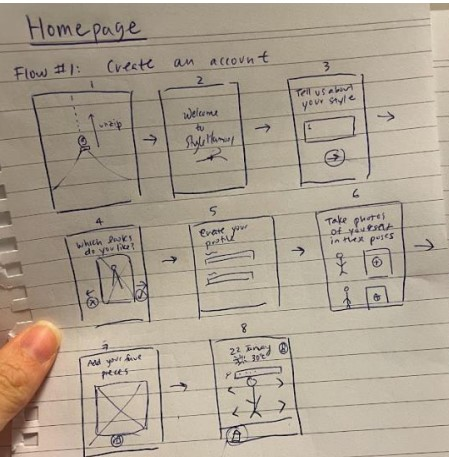 Homepage
Flow #1: Create an account
1
unzip
2
Welcome
to
3
Tell us about
your style
4
Which looks
do you like?
5
Create your
profile
6
Take photos
of yourself
in these poses
7
Add your fave
pieces
8